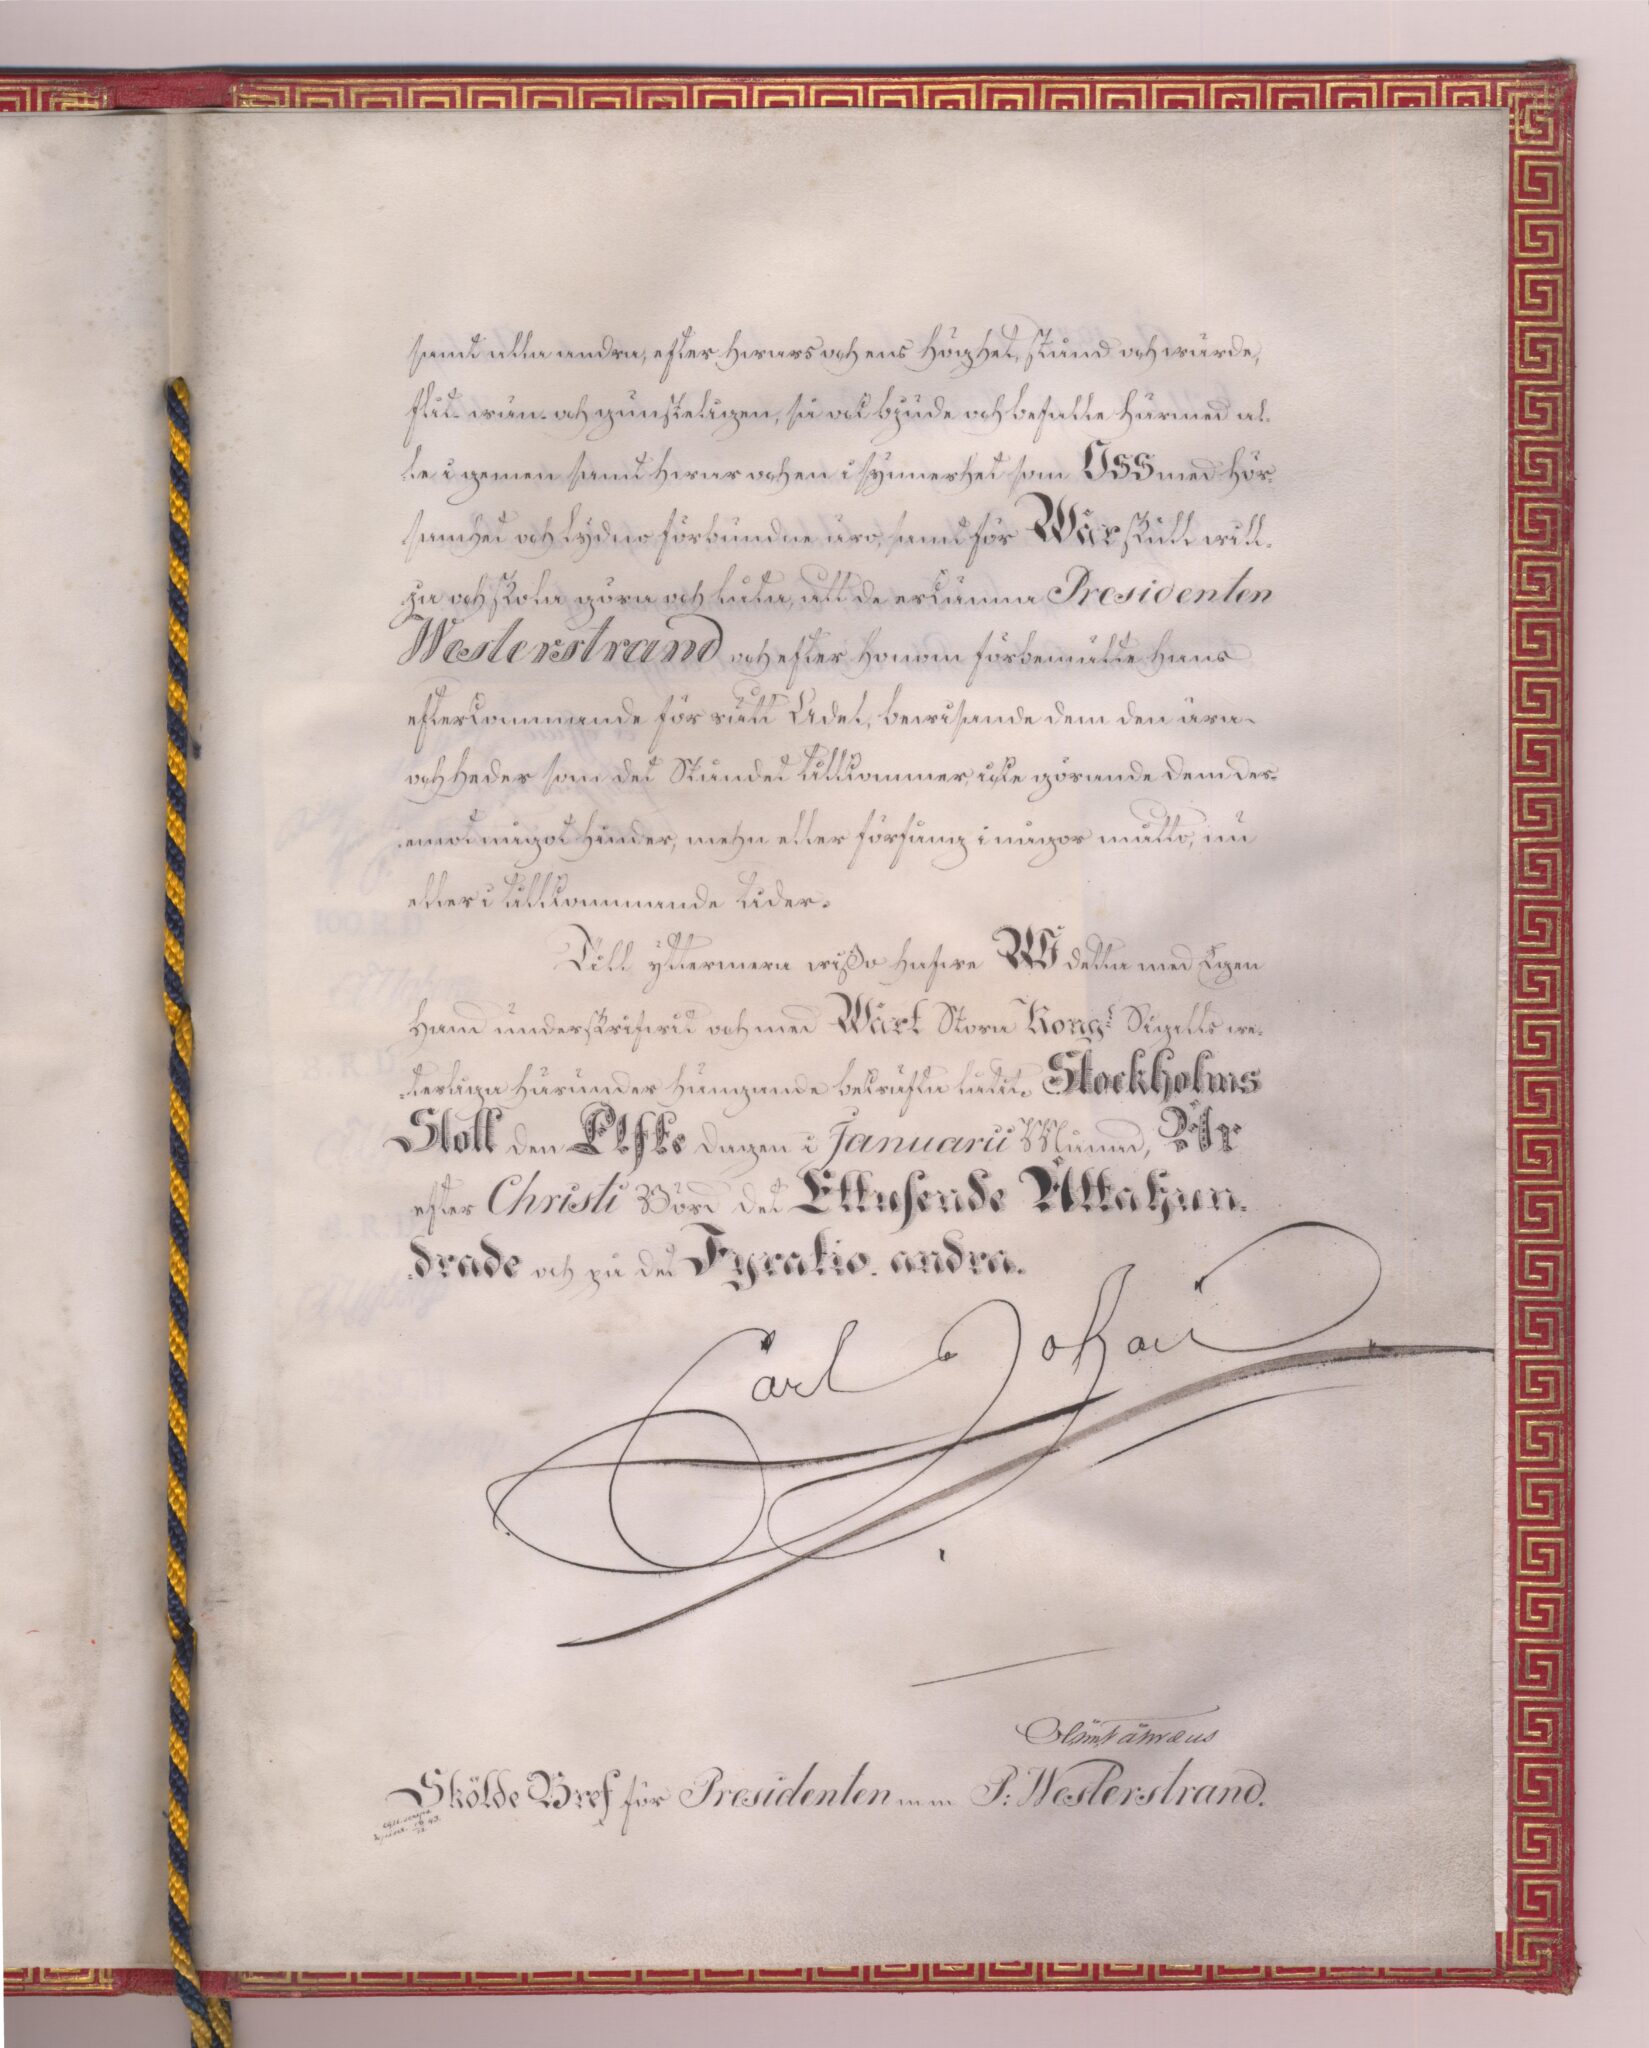 samt alla andra, efter hwars och ens Höghet, stånd och wärde,
flit- wän- och gunsteligen, så ock bjude och befalle härmed al-
-le i gemen samt hwar och en i synnerhet som OSS med hör-
samhet och lydno förbundne äro, samt för Wår skull will-
ja och skola göra och låta, att de erkänna Presidenten
Westerstrand och efter Honom förbemälte Hans
efterkommande för rätt Adel, bewisande dem den ära
och heder som det Ståndet tillkommer, icke görande dem der-
emot något hinder, mehn eller förfång i någor måtto, nu
eller i tillkommande tider.
Till yttermera wisso hafwe WI detta med Egen
Hand underskrifwit och med Wårt Stora Kongl. Sigills we-
-derliga härunder hängande bekräfta låtit. Stockholms
Slott den Elfte dagen i Januarii Månad, År
efter Christi Börd det Ettusende Åttahun-
-drade och på det Fyratio andra.
Carl Johan
Åhraeus
Skölde Bref för Presidenten m m P: Westerstrand.